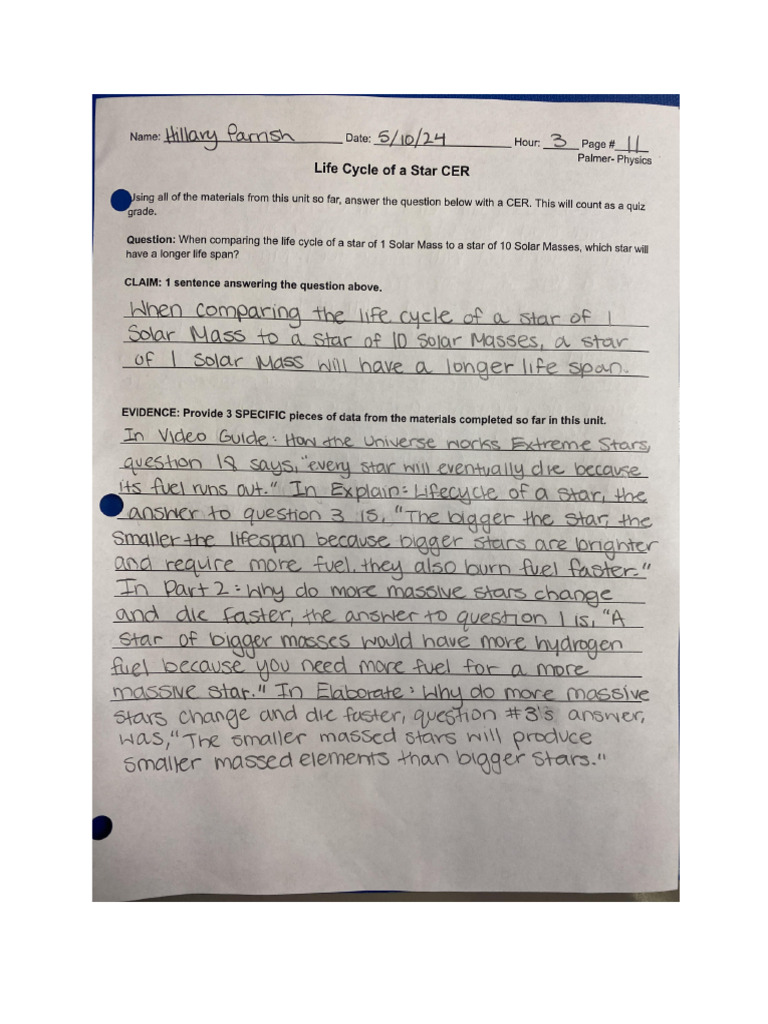 Name: Hillary Parrish Date: 5/10/24 Hour: 3 Page # 11
Palmer- Physics
Life Cycle of a Star CER
Using all of the materials from this unit so far, answer the question below with a CER. This will count as a quiz
grade.
Question: When comparing the life cycle of a star of 1 Solar Mass to a star of 10 Solar Masses, which star will
have a longer life span?
CLAIM: 1 sentence answering the question above.
When comparing the life cycle of a star of 1
Solar Mass to a star of 10 Solar Masses, a star
of 1 Solar Mass will have a longer life span.
EVIDENCE: Provide 3 SPECIFIC pieces of data from the materials completed so far in this unit.
In Video Guide: How the Universe Works Extreme Stars,
question 18 says, "every star will eventually die because
its fuel runs out." In Explain: Lifecycle of a star, the
answer to question 3 is, "The bigger the star, the
smaller the lifespan because bigger stars are brighter
and require more fuel. they also burn fuel faster."
In Part 2: Why do more massive stars change
and die faster, the answer to question 1 is, "A
star of bigger masses would have more hydrogen
fuel because you need more fuel for a more
massive star." In Elaborate: Why do more massive
stars change and die faster, question #3's answer,
was, "The smaller massed stars will produce
smaller massed elements than bigger stars."